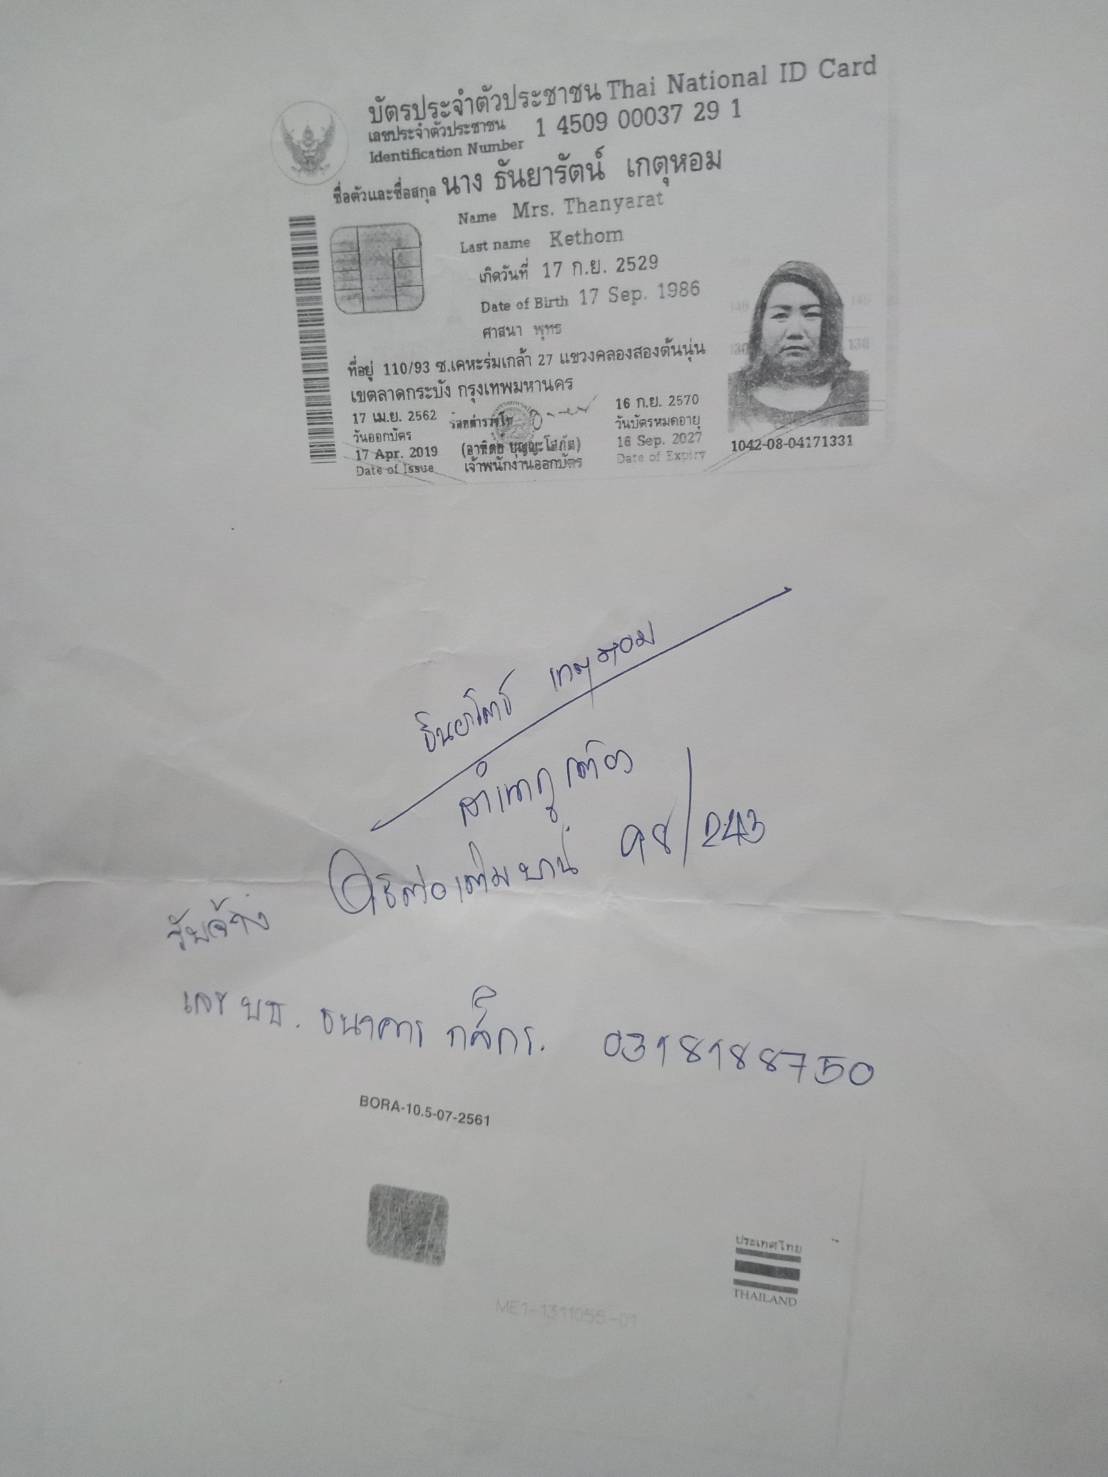 บัตรประจำตัวประชาชน Thai National ID Card
เลขประจำตัวประชาชน
Identification Number 1 4509 00037 29 1
ชื่อตัวและชื่อสกุล นาง ธันยารัตน์ เกตุหอม
Name Mrs. Thanyarat
Last name Kethom
เกิดวันที่ 17 ก.ย. 2529
Date of Birth 17 Sep. 1986
ศาสนา พุทธ
ที่อยู่ 110/93 ซ.เคหะร่มเกล้า 27 แขวงคลองสองต้นนุ่น
เขตลาดกระบัง กรุงเทพมหานคร
17 เม.ย. 2562
วันออกบัตร
17 Apr. 2019
Date of Issue
ร้อยตำรวจโท
เจ้าพนักงานออกบัตร
16 ก.ย. 2570
วันบัตรหมดอายุ
16 Sep. 2027
Date of Expiry
1042-08-04171331
ธันยารัตน์ เกตุหอม
สำเนาถูกต้อง
รับจ้าง ต่อเติมบ้าน 98/243
เลข บช. ธนาคาร กสิกร. 0318188750
BORA-10.5-07-2561
ประเทศไทย
THAILAND
ME1-1311055-01